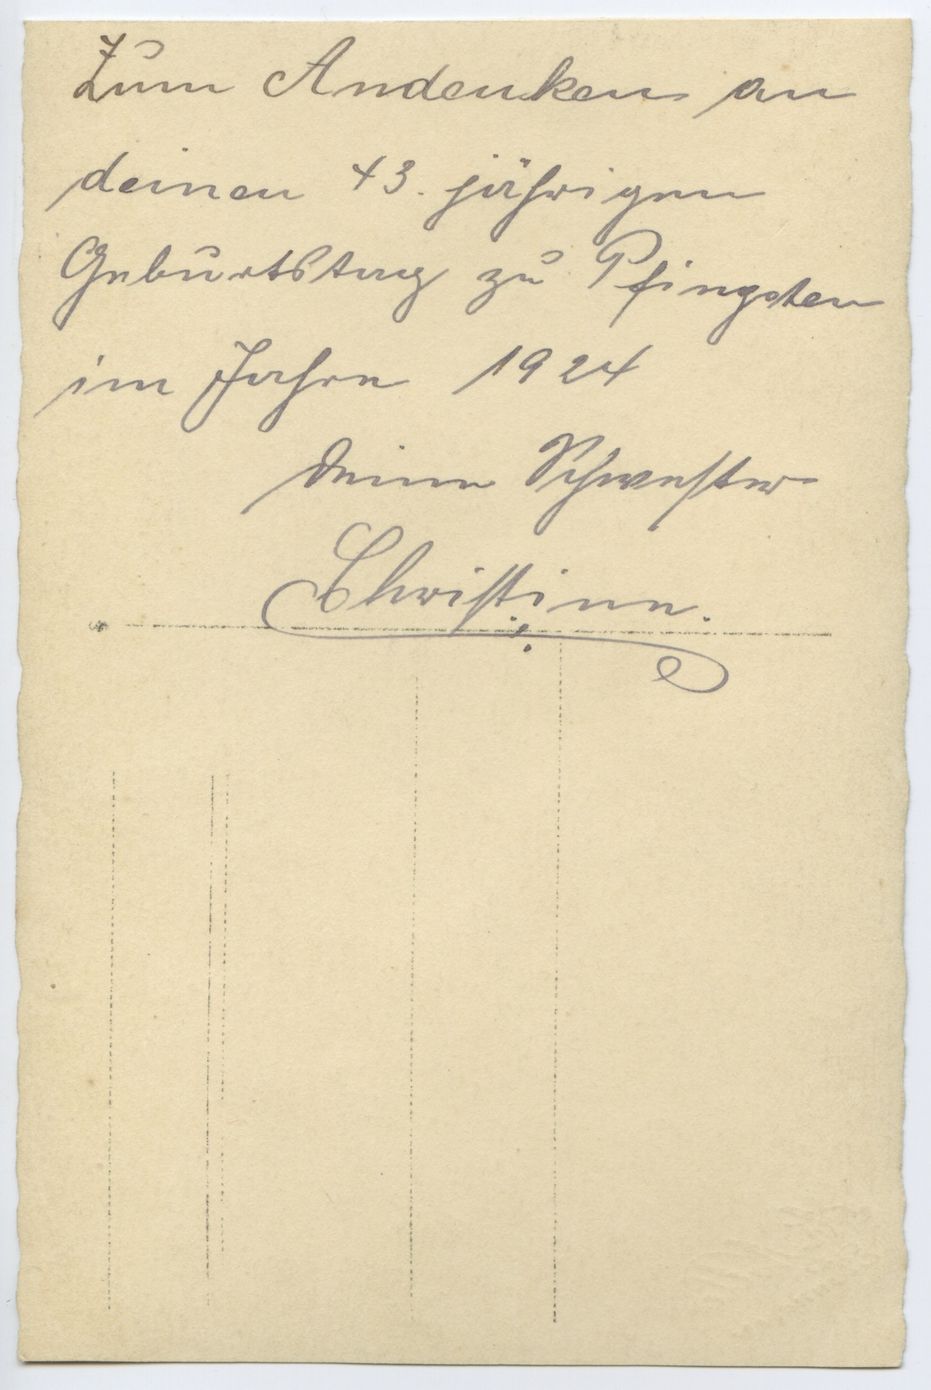 Zum Andenken an
deinen 43. jährigen
Geburtstag zu Pfingsten
im Jahre 1924
Deine Schwester
Christine.